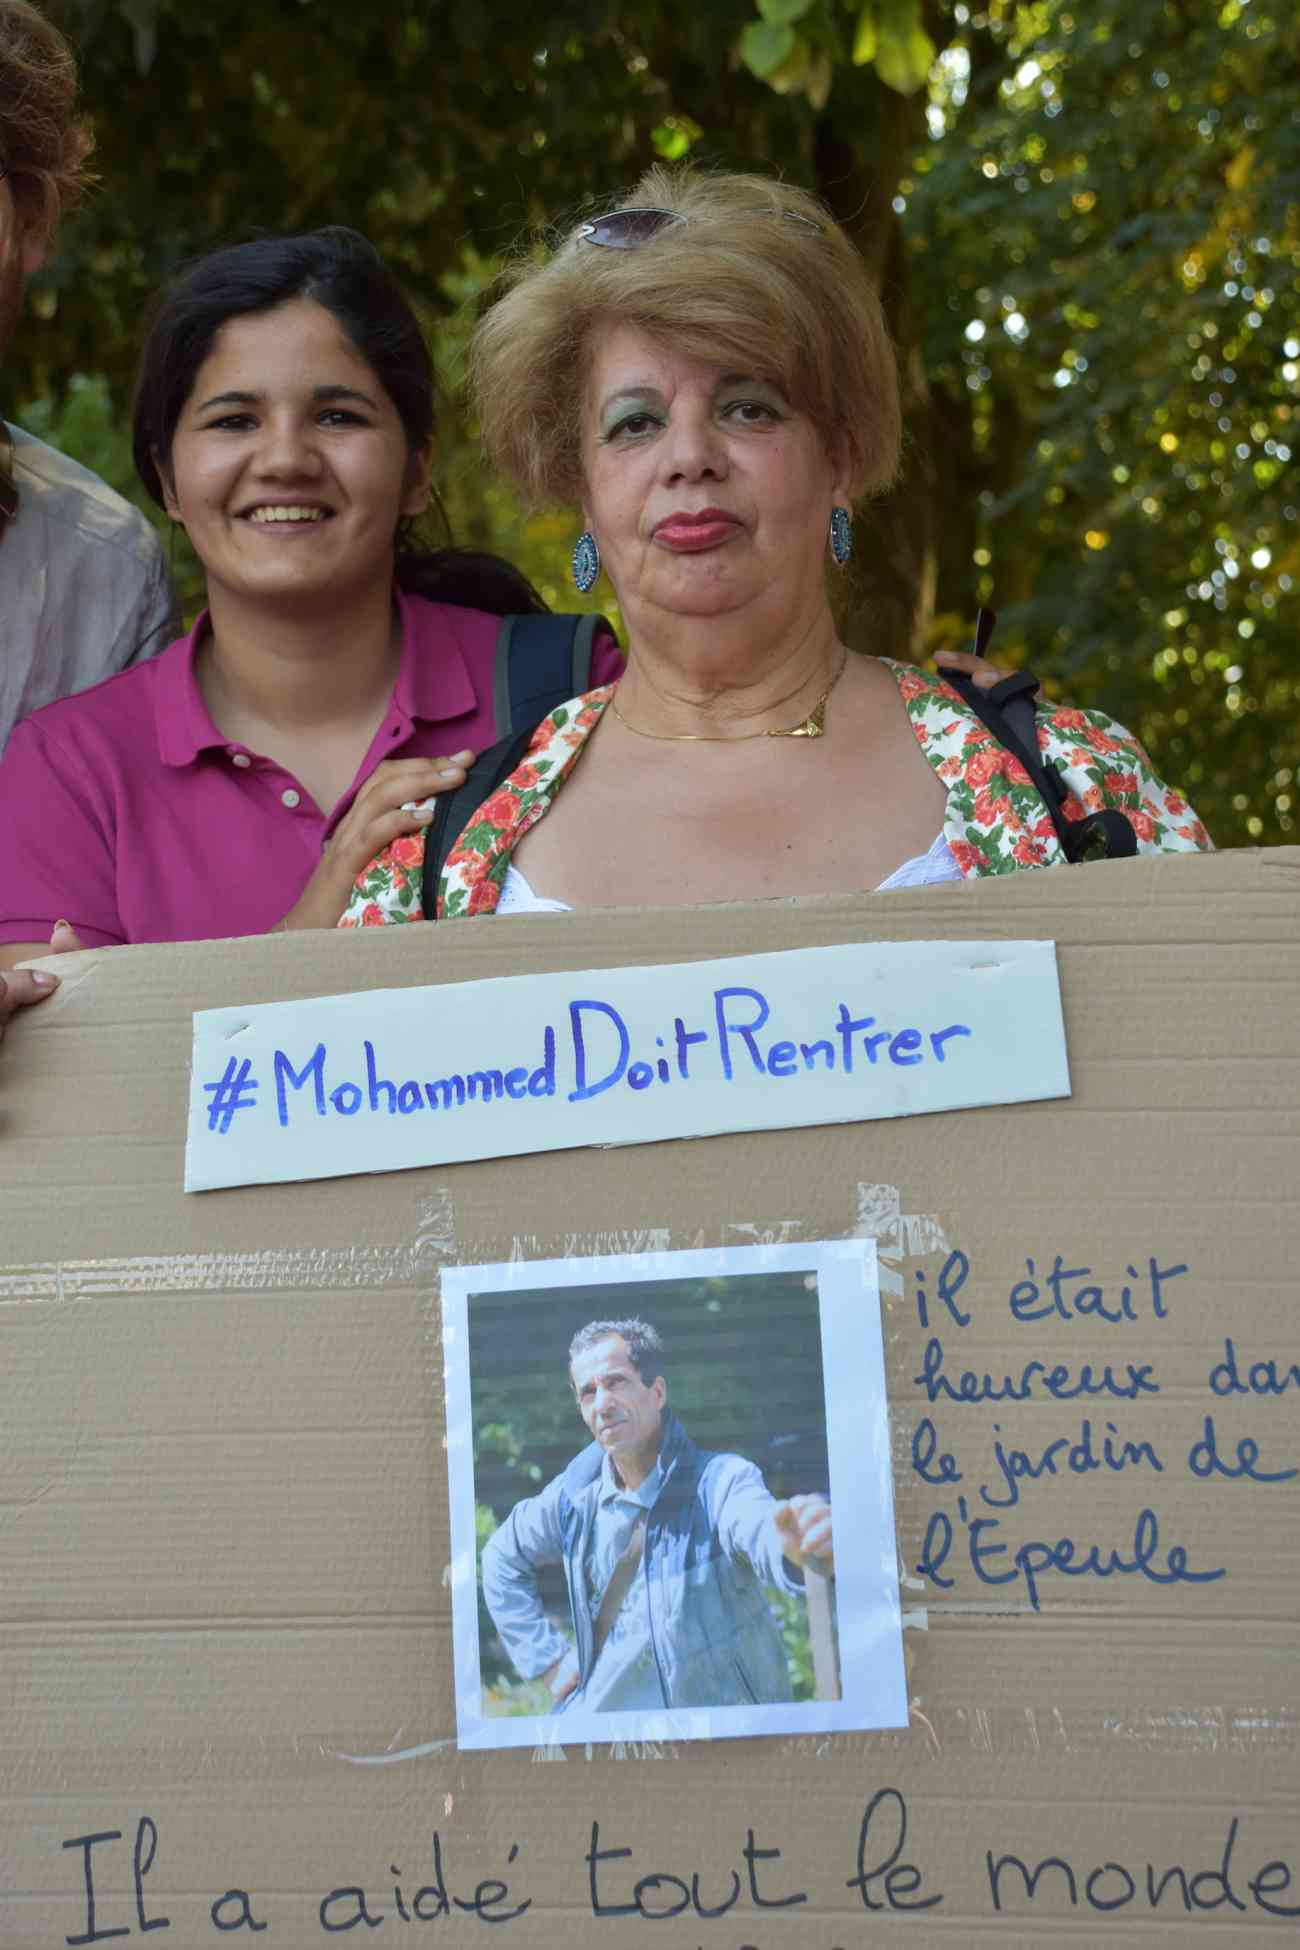 #MohammedDoitRentrer
il était
heureux dans
le jardin de
l'Epeule
Il a aidé tout le monde